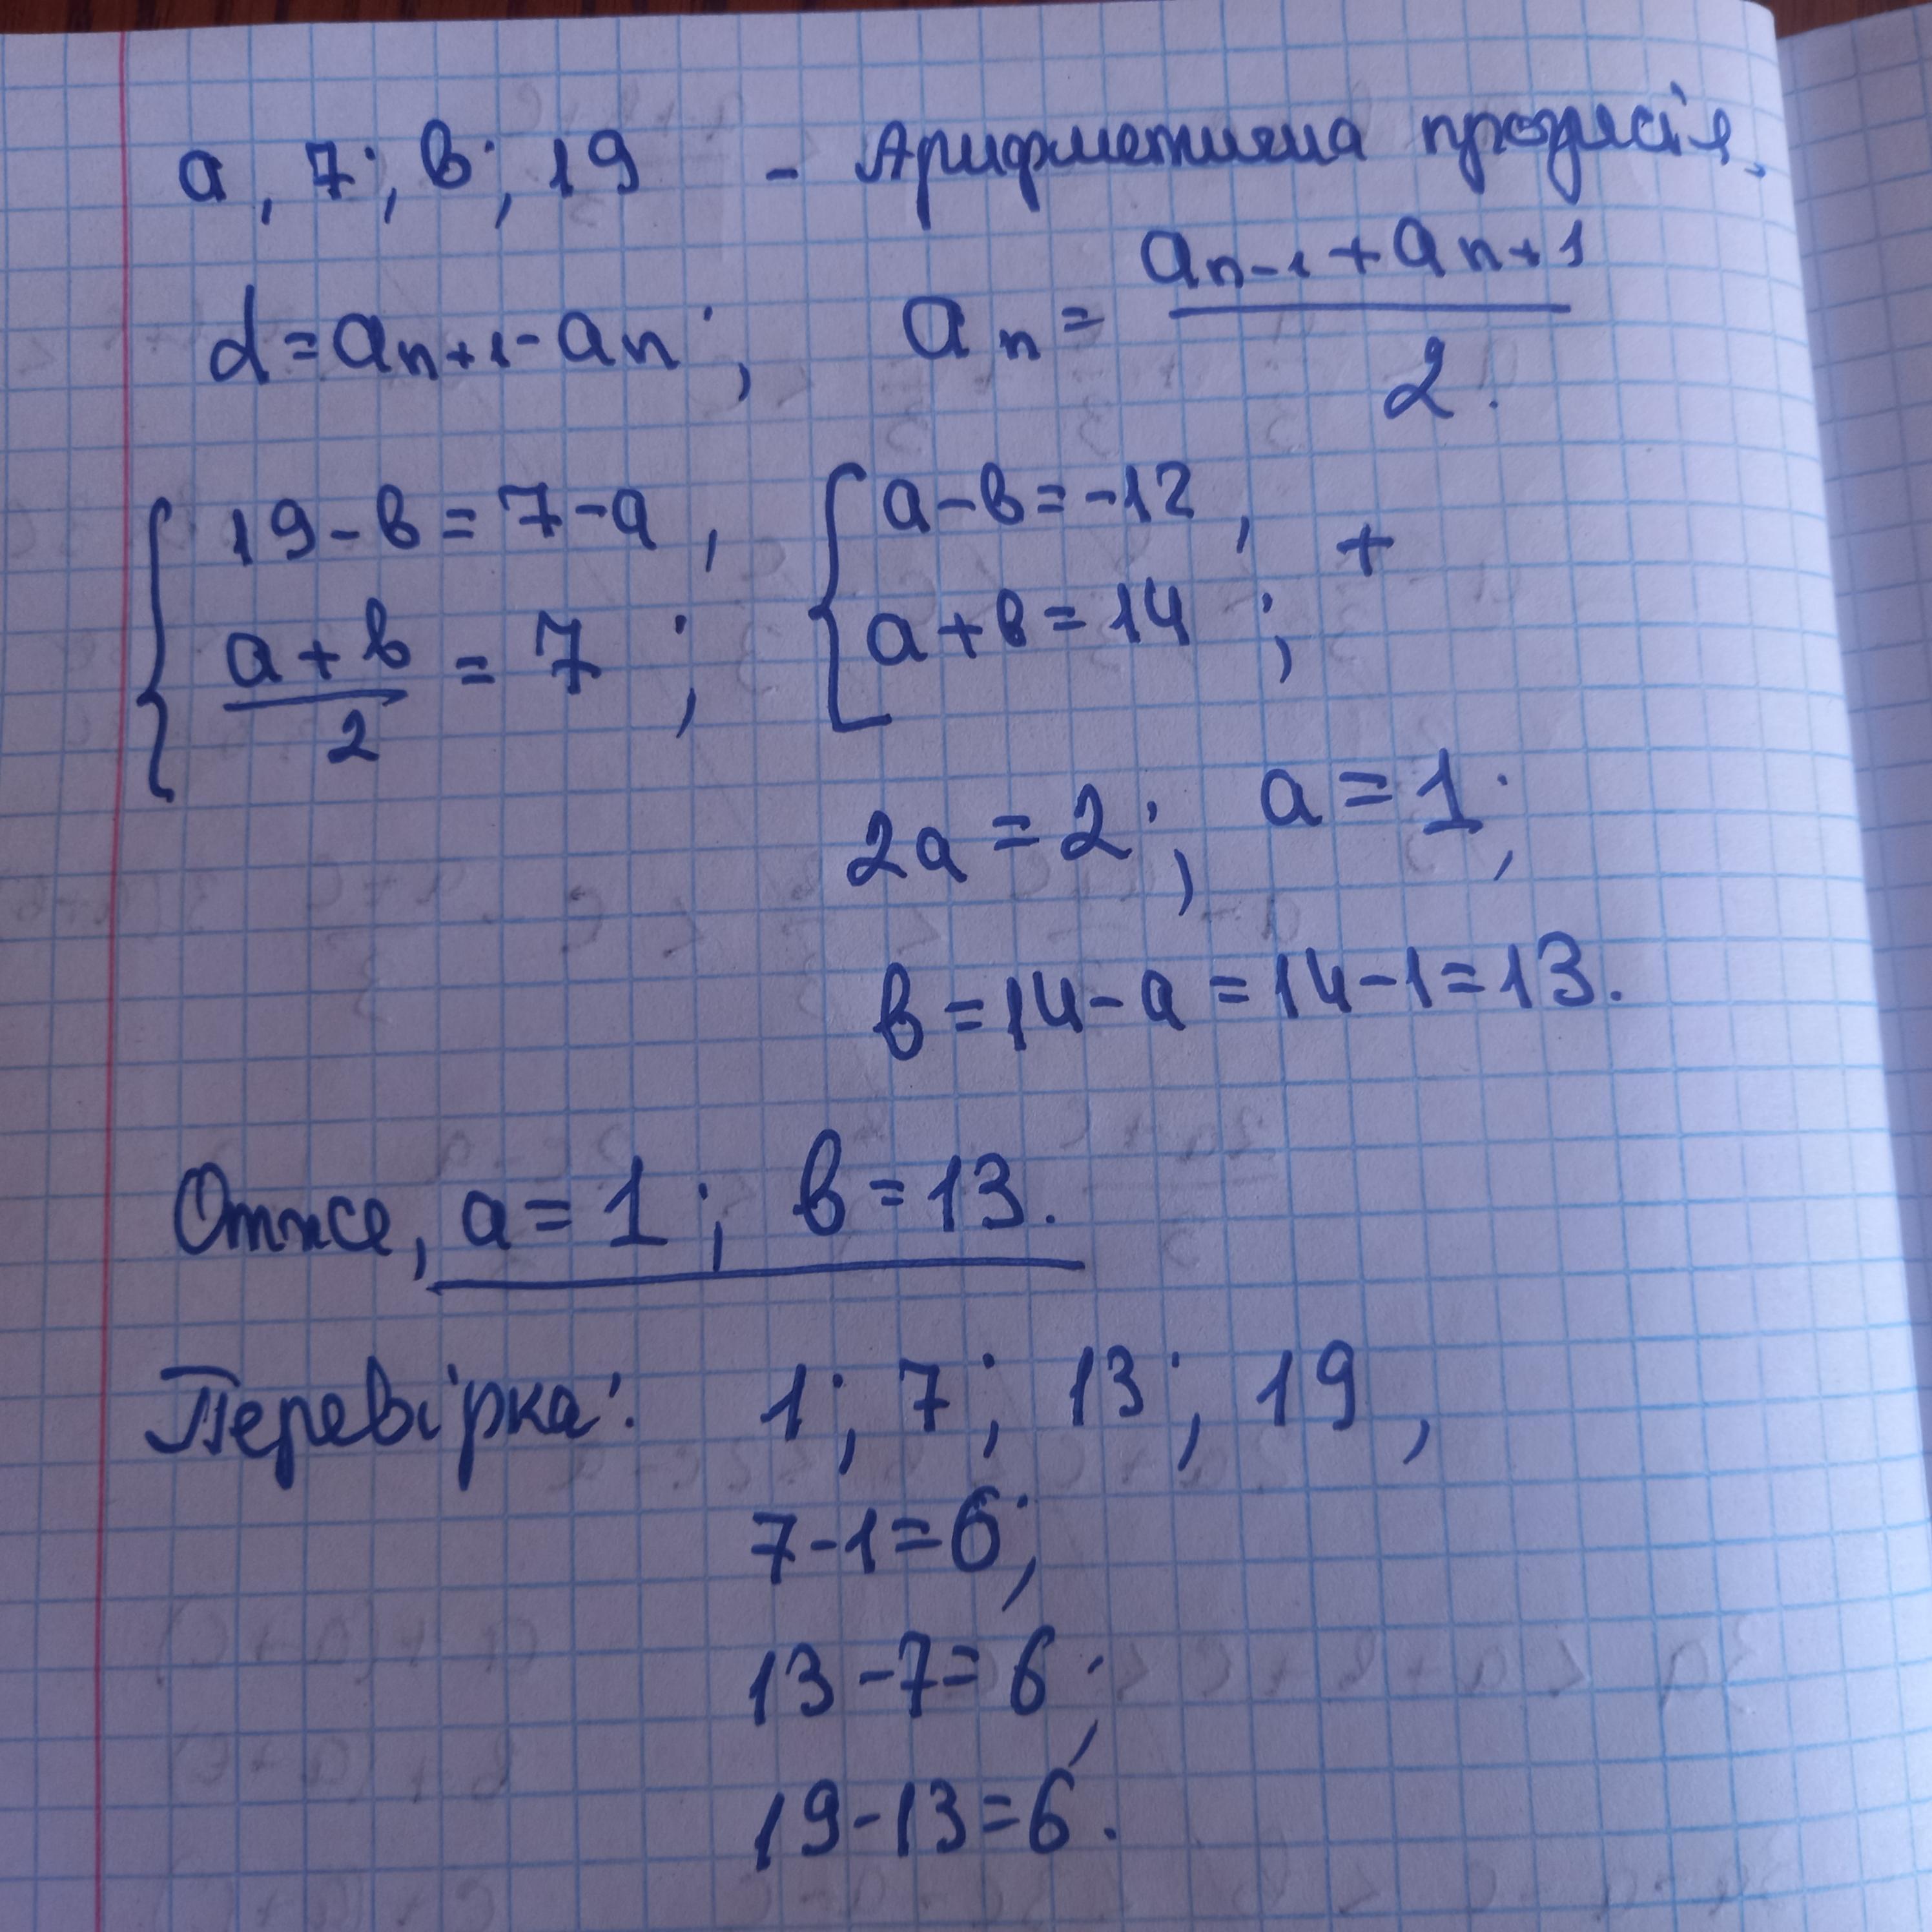 a, 7; в; 19 - Арифметична прогресія,
d = aₙ₊₁ - aₙ; aₙ = (aₙ₋₁ + aₙ₊₁)/2.
{ 19 - в = 7 - a, (a + в)/2 = 7; { a - в = -12, a + в = 14; +
2a = 2; a = 1;
в = 14 - a = 14 - 1 = 13.
Отже, a = 1; в = 13.
Перевірка: 1; 7; 13; 19,
7 - 1 = 6;
13 - 7 = 6;
19 - 13 = 6.